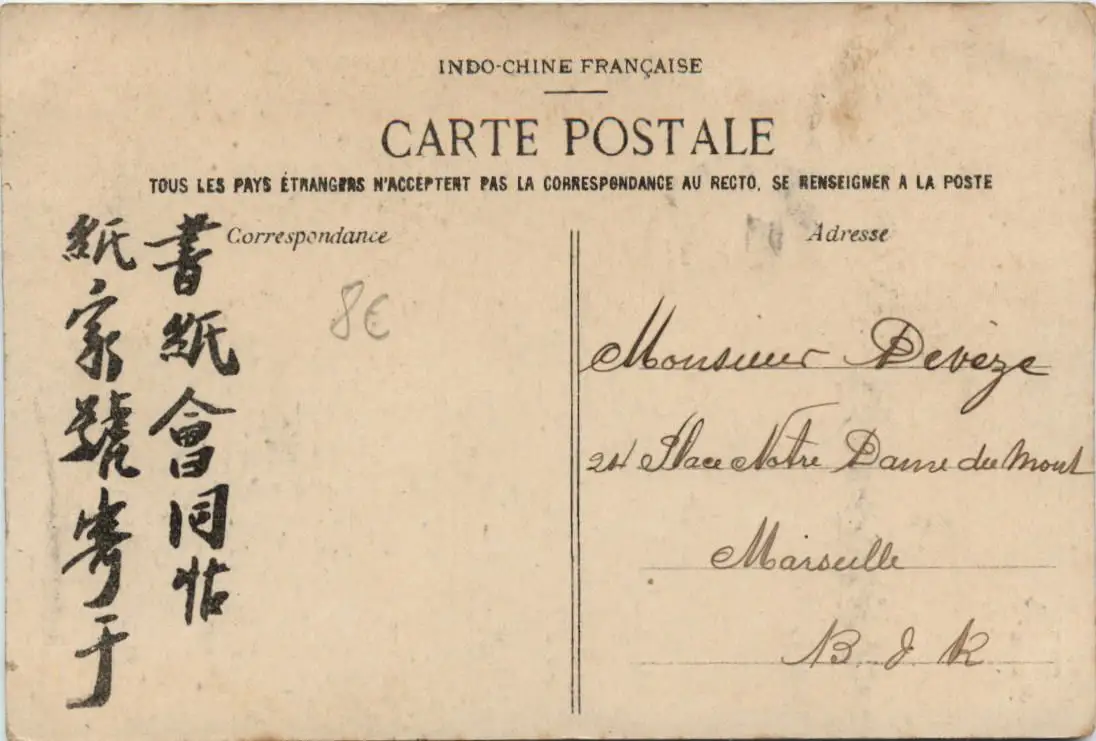 INDO-CHINE FRANÇAISE
CARTE POSTALE
TOUS LES PAYS ÉTRANGERS N'ACCEPTENT PAS LA CORRESPONDANCE AU RECTO, SE RENSEIGNER A LA POSTE
Correspondance
書紙會同帖
紙家號寄于
8€
Adresse
Monsieur Devèze
24 Place Notre Dame du Mont
Marseille
B. d. R